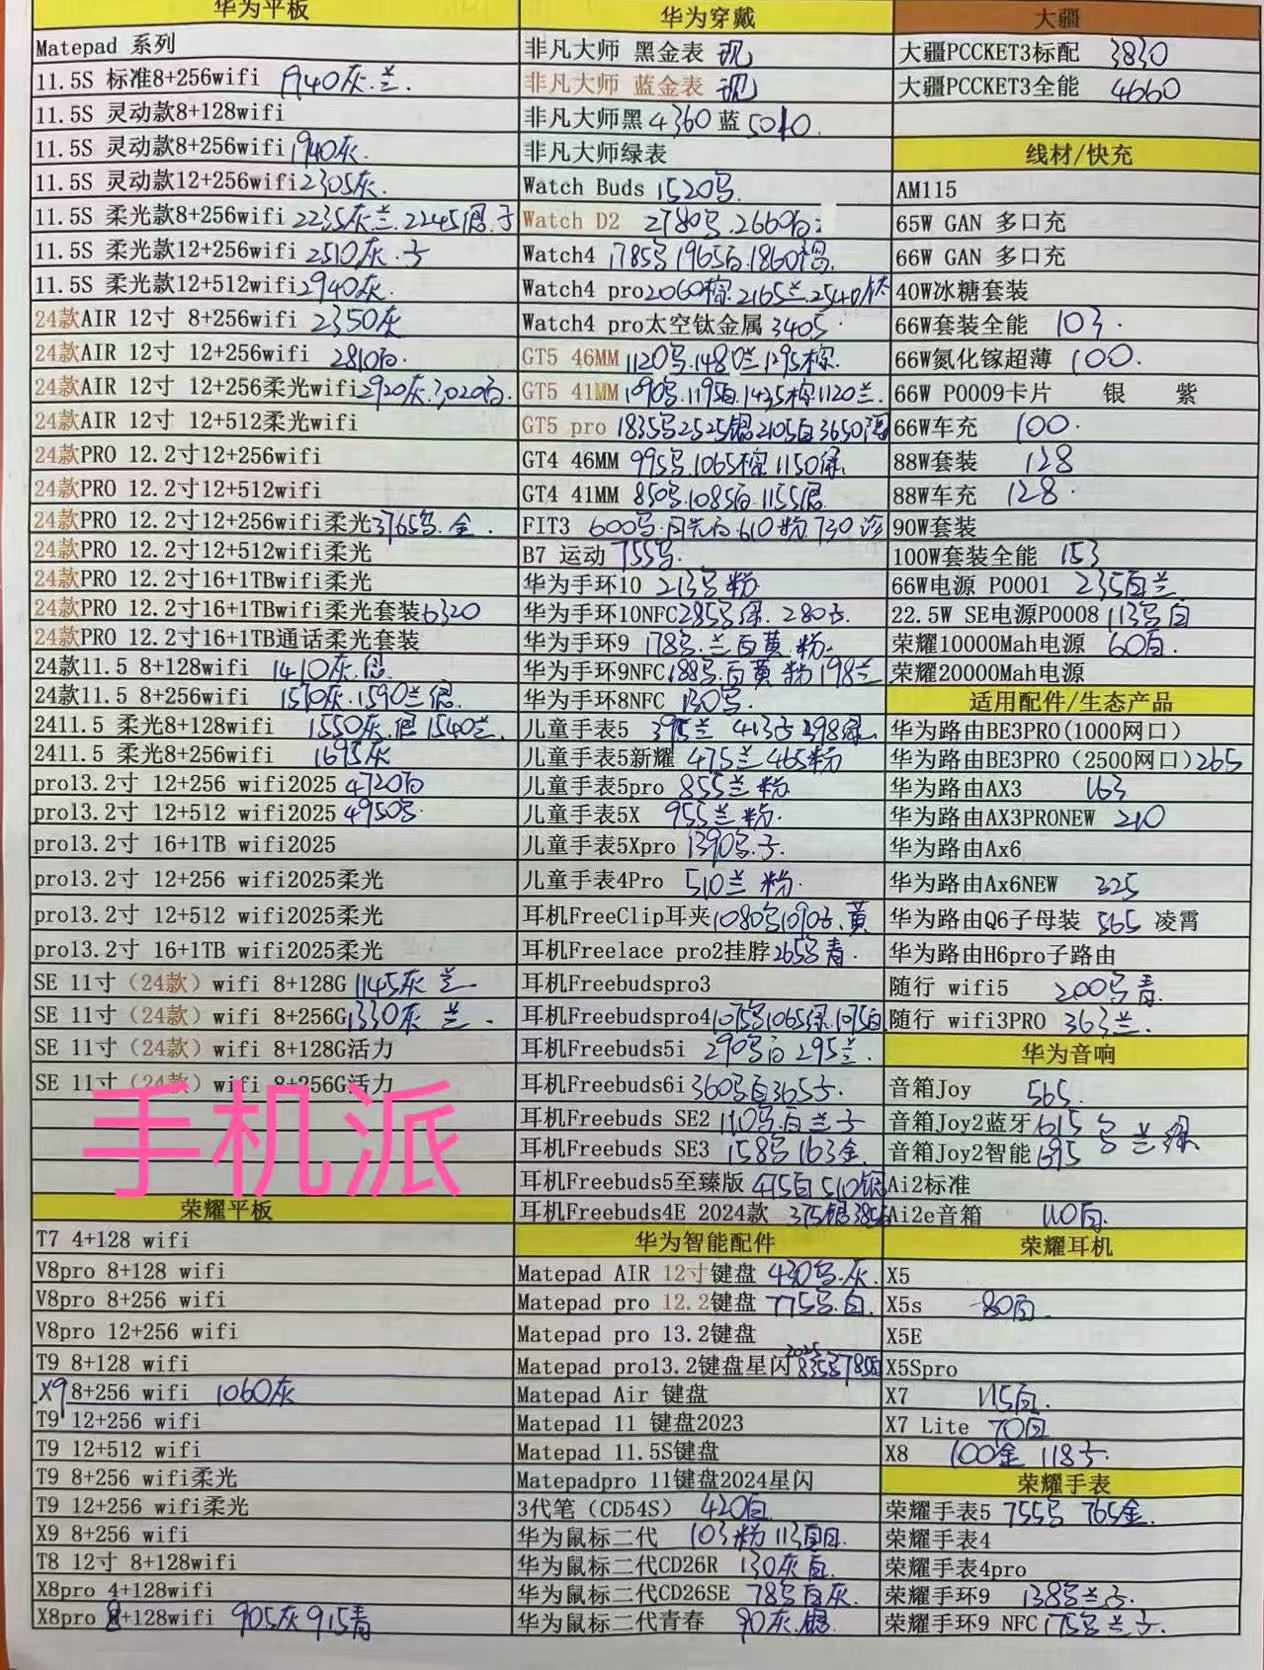 华为平板
Matepad 系列
11.5S 标准8+256wifi 1940灰.兰.
11.5S 灵动款8+128wifi
11.5S 灵动款8+256wifi 1940灰.
11.5S 灵动款12+256wifi 2305灰.
11.5S 柔光款8+256wifi 2235灰兰.2245银.子
11.5S 柔光款12+256wifi 2510灰.子
11.5S 柔光款12+512wifi 2940灰.
24款AIR 12寸 8+256wifi 2350灰
24款AIR 12寸 12+256wifi 2810白.
24款AIR 12寸 12+256柔光wifi 2920灰.3020白.
24款AIR 12寸 12+512柔光wifi
24款PRO 12.2寸12+256wifi
24款PRO 12.2寸12+512wifi
24款PRO 12.2寸12+256wifi柔光 3765号.金.
24款PRO 12.2寸12+512wifi柔光
24款PRO 12.2寸16+1TBwifi柔光
24款PRO 12.2寸16+1TBwifi柔光套装 6320
24款PRO 12.2寸16+1TB通话柔光套装
24款11.5 8+128wifi 1410灰.银
24款11.5 8+256wifi 1570灰.1590兰银.
2411.5 柔光8+128wifi 1550灰.银 1540兰.
2411.5 柔光8+256wifi 1695灰
pro13.2寸 12+256 wifi2025 4720白
pro13.2寸 12+512 wifi2025 4950号.
pro13.2寸 16+1TB wifi2025
pro13.2寸 12+256 wifi2025柔光
pro13.2寸 12+512 wifi2025柔光
pro13.2寸 16+1TB wifi2025柔光
SE 11寸（24款）wifi 8+128G 1145灰 兰.
SE 11寸（24款）wifi 8+256G 1330灰 兰.
SE 11寸（24款）wifi 8+128G活力
SE 11寸（24款）wifi 8+256G活力
手机派
荣耀平板
T7 4+128 wifi
V8pro 8+128 wifi
V8pro 8+256 wifi
V8pro 12+256 wifi
T9 8+128 wifi
X9 8+256 wifi 1060灰
T9 12+256 wifi
T9 12+512 wifi
T9 8+256 wifi柔光
T9 12+256 wifi柔光
X9 8+256 wifi
T8 12寸 8+128wifi
X8pro 4+128wifi
X8pro 8+128wifi 905灰 915青
华为穿戴
非凡大师 黑金表 现
非凡大师 蓝金表 现
非凡大师黑 4360 蓝 5010.
非凡大师绿表
Watch Buds 1520号.
Watch D2 2780号.2660白.
Watch4 1785号 1965白.1860褐.
Watch4 pro 2060棕.2165兰.2540钛
Watch4 pro太空钛金属 3405.
GT5 46MM 1120号.1480兰1295棕.
GT5 41MM 1090号.1195白.1435棕1120兰.
GT5 pro 1835号2525银2105白3650
GT4 46MM 995号.1065棕 1150绿.
GT4 41MM 850号.1085白.1155银.
FIT3 600号. 610粉.730
B7 运动 755号.
华为手环10 213号 粉
华为手环10NFC 285号绿. 280子.
华为手环9 178号.兰 白 黄 粉.
华为手环9NFC 188号.白黄 粉 198兰
华为手环8NFC 130号.
儿童手表5 395兰 413子 398绿
儿童手表5新耀 475兰 465粉
儿童手表5pro 855兰 粉.
儿童手表5X 955兰 粉.
儿童手表5Xpro 1390号.子.
儿童手表4Pro 510兰 粉.
耳机FreeClip耳夹 1080号1090子.黄
耳机Freelace pro2挂脖 265号青.
耳机Freebudspro3
耳机Freebudspro4 1075号1065绿.1075白
耳机Freebuds5i 290号白 295兰.
耳机Freebuds6i 360号白365子.
耳机Freebuds SE2 110号.白 兰 子
耳机Freebuds SE3 158号 163金.
耳机Freebuds5至臻版 475白 510银
耳机Freebuds4E 2024款 375银
华为智能配件
Matepad AIR 12寸键盘 430号.灰.
Matepad pro 12.2键盘 775号.白.
Matepad pro 13.2键盘
Matepad pro13.2键盘星闪 2025 835号
Matepad Air 键盘
Matepad 11 键盘2023
Matepad 11.5S键盘
Matepadpro 11键盘2024星闪
3代笔（CD54S） 420白
华为鼠标二代 103粉 113
华为鼠标二代CD26R 130灰 白.
华为鼠标二代CD26SE 78号 白灰.
华为鼠标二代青春 90灰.银.
大疆
大疆PCCKET3标配 3830
大疆PCCKET3全能 4660
线材/快充
AM115
65W GAN 多口充
66W GAN 多口充
40W冰糖套装
66W套装全能 103.
66W氮化镓超薄 100.
66W P0009卡片 银 紫
66W车充 100.
88W套装 128
88W车充 128.
90W套装
100W套装全能 153
66W电源 P0001 235白兰
22.5W SE电源P0008 113号白
荣耀10000Mah电源 60白.
荣耀20000Mah电源
适用配件/生态产品
华为路由BE3PRO(1000网口)
华为路由BE3PRO（2500网口）265
华为路由AX3 163
华为路由AX3PRONEW 210
华为路由Ax6
华为路由Ax6NEW 325
华为路由Q6子母装 565 凌霄
华为路由H6pro子路由
随行 wifi5 200号青.
随行 wifi3PRO 363兰.
华为音响
音箱Joy 565.
音箱Joy2蓝牙 615 号 兰 绿
音箱Joy2智能 695
Ai2标准
Ai2e音箱 110白.
荣耀耳机
X5
X5s 80白.
X5E
X5Spro
X7 115白.
X7 Lite 70白
X8 100金 118子.
荣耀手表
荣耀手表5 755号 765金.
荣耀手表4
荣耀手表4pro
荣耀手环9 138号兰子.
荣耀手环9 NFC 175号 兰 子.